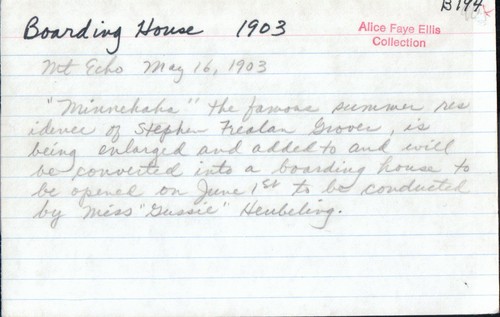 B194
Boarding House 1903
Alice Faye Ellis
Collection
Mt Echo May 16, 1903
"Minnehaha" the famous summer res
idence of Stephen Frealan Grover, is
being enlarged and added to and will
be converted into a boarding house to
be opened on June 1st to be conducted
by Miss "Gussie" Heubeling.